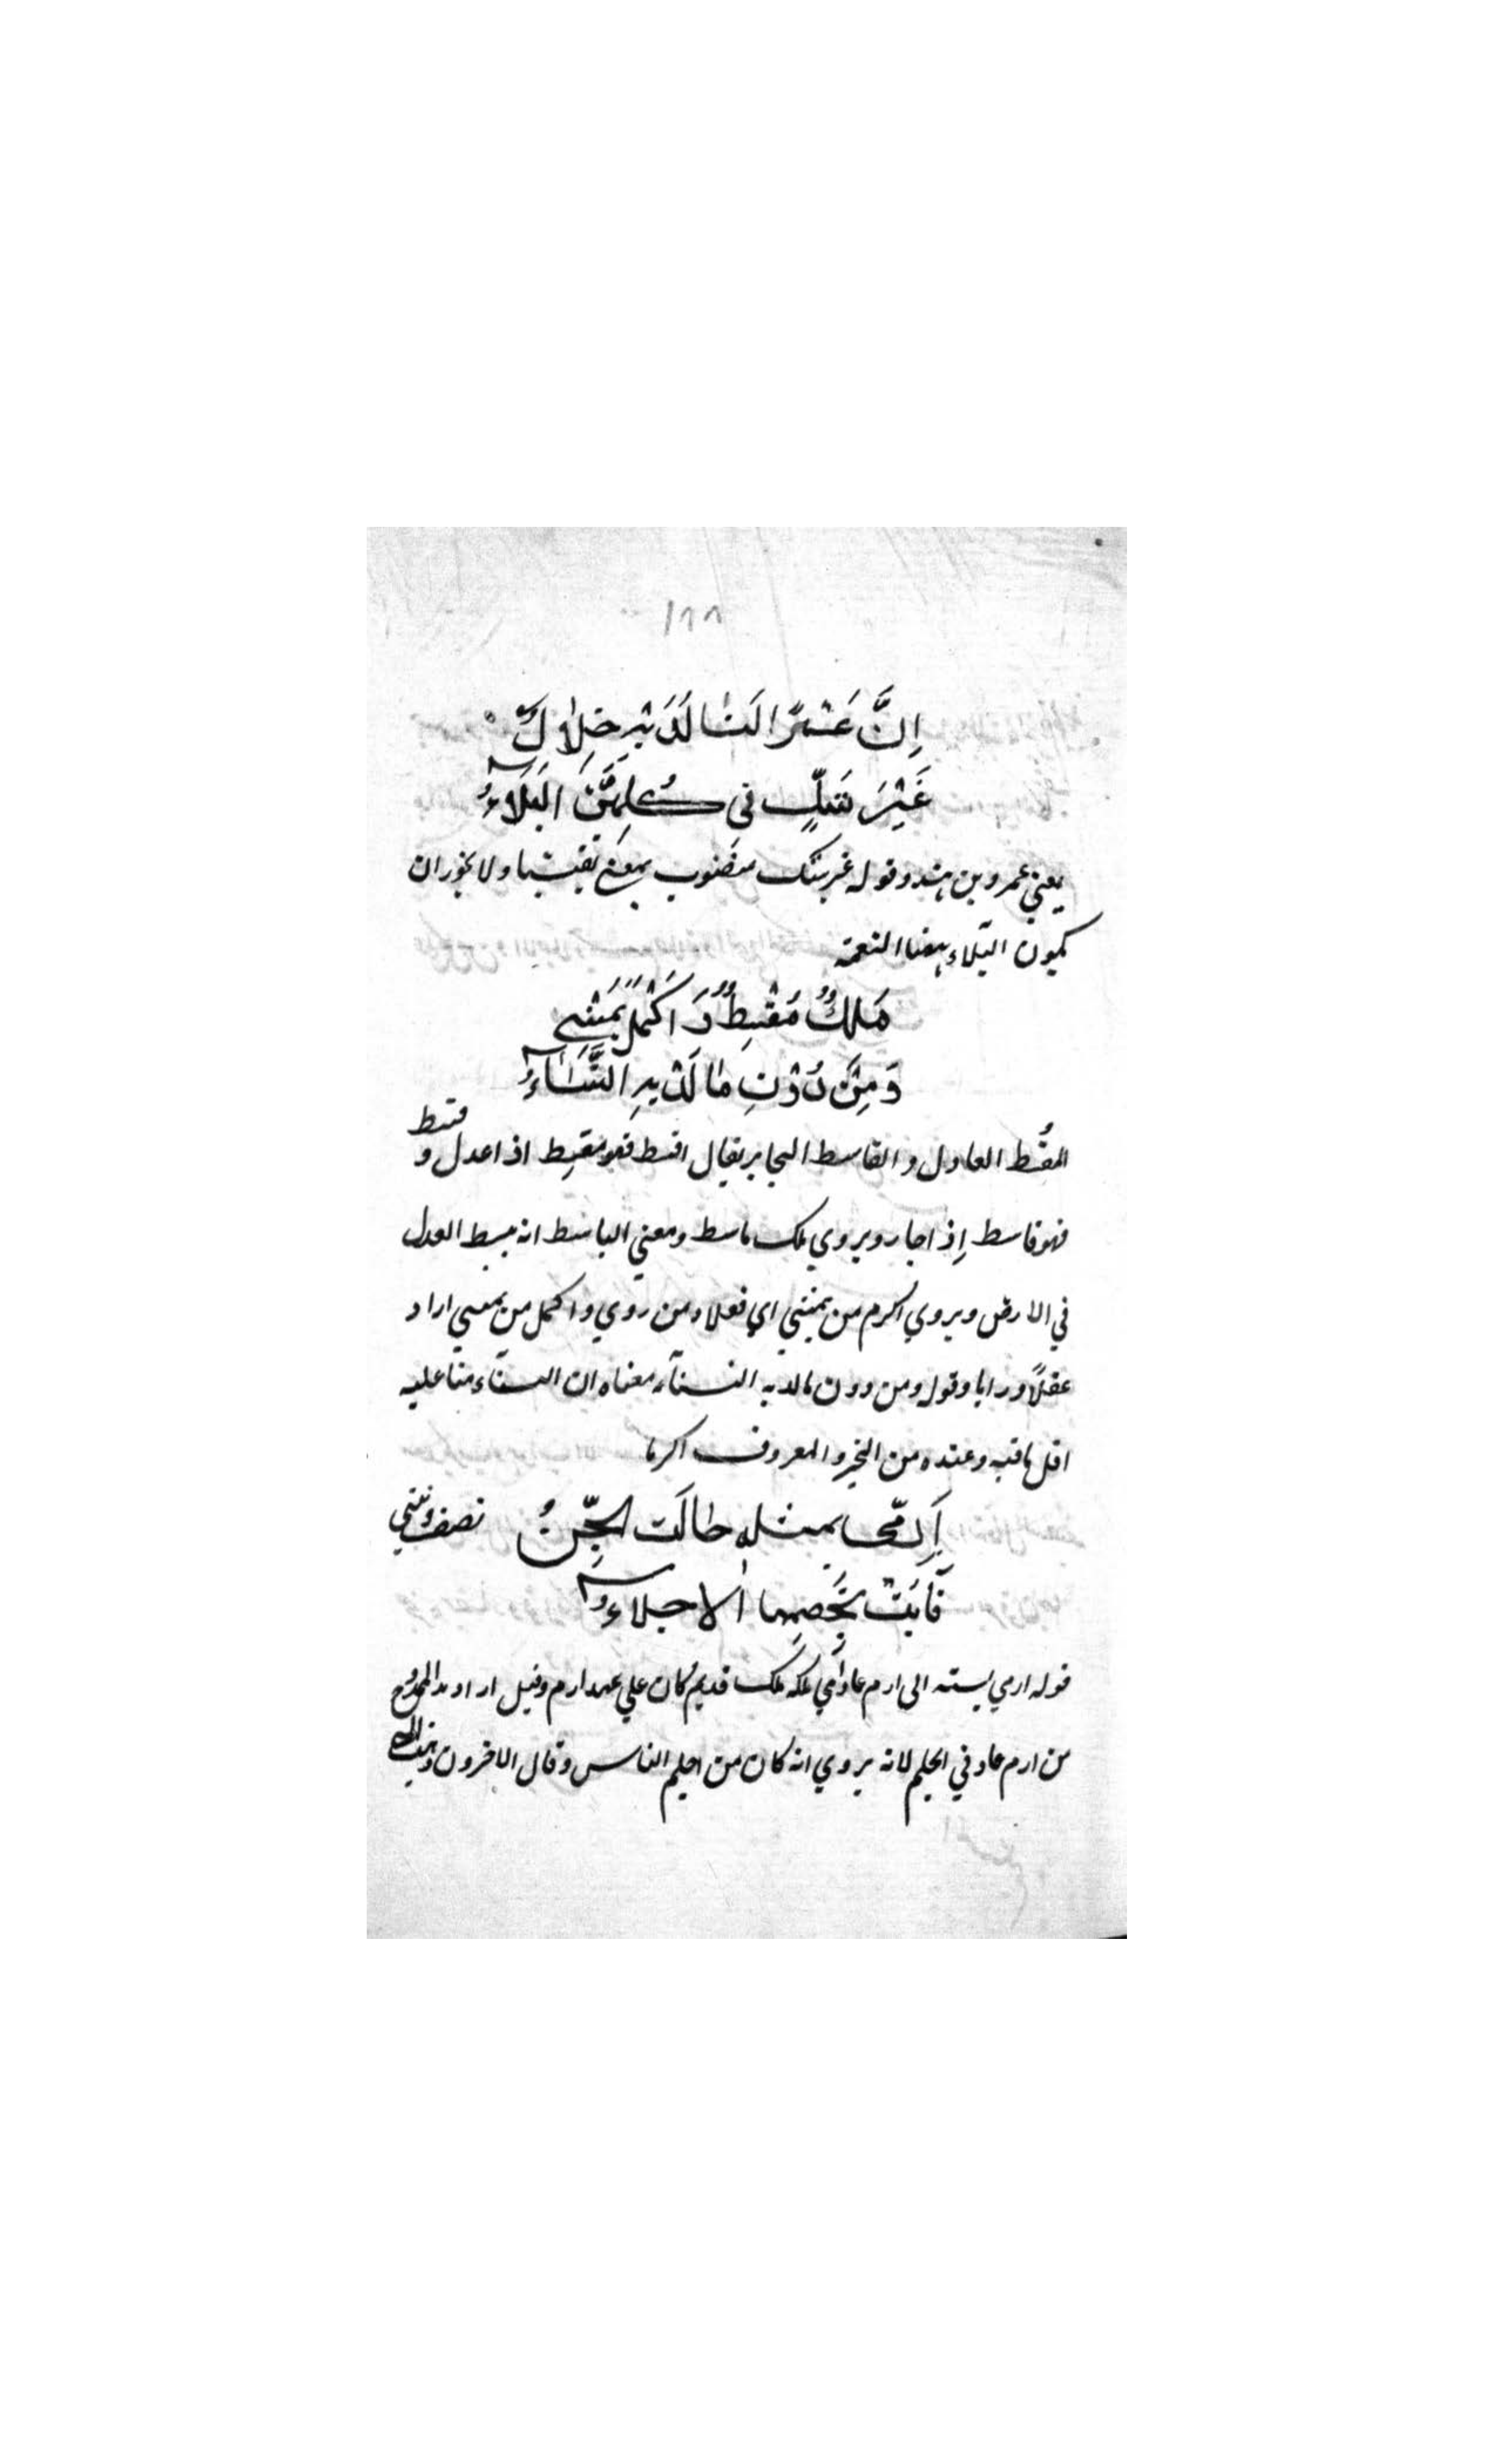 ١٨٨
اِنَّ عَمْرًا لَنَا لَدَيْهِ خِلَالٌ
غَيْرَ شَكٍّ فى كُلِّهِنَّ البَلَاءُ
يعني عمرو بن هند وقوله غير شك منصوب بمعني يقينا ولا يجوز ان
يكون البلاء بهنا النعمة
مَلِكٌ مُقْسِطٌ وَاَكْمَلُ يَمْشِي
وَمِنْ دُوْنِ مَا لَدَيْهِ الثَّنَاءُ
المقُسِط العادل والقاسط الجاير يقال اقسط فهو مقسِط اذا عدل و قسط
فهو قاسط اِذ اجار ويروي ملك باسط ومعني الباسط انه يبسط العدل
في الارض ويروي اكرم من يمشي اي فعلا ومن روي واكمل من يمشي اراد
عقلاً ورايا وقوله ومن دون مالديه الثنآء معناه ان الثنآء منا عليه
اقل مافيه وعنده من الخير والمعروف اكر ما
اِرَمِّى بمثله جالَت الجِّنُ نصف وثنى
فَآبَتْ لِخَصِمها الاجلاءُ
قوله ارمي نسبته الى ارم عاد اي ملكه ملك قديم كان علي عهد ارم وقيل اراد به الممدوح
من ارم عاد في الحلم لانه يروي انه كان من احلم الناس وقال الاخرون